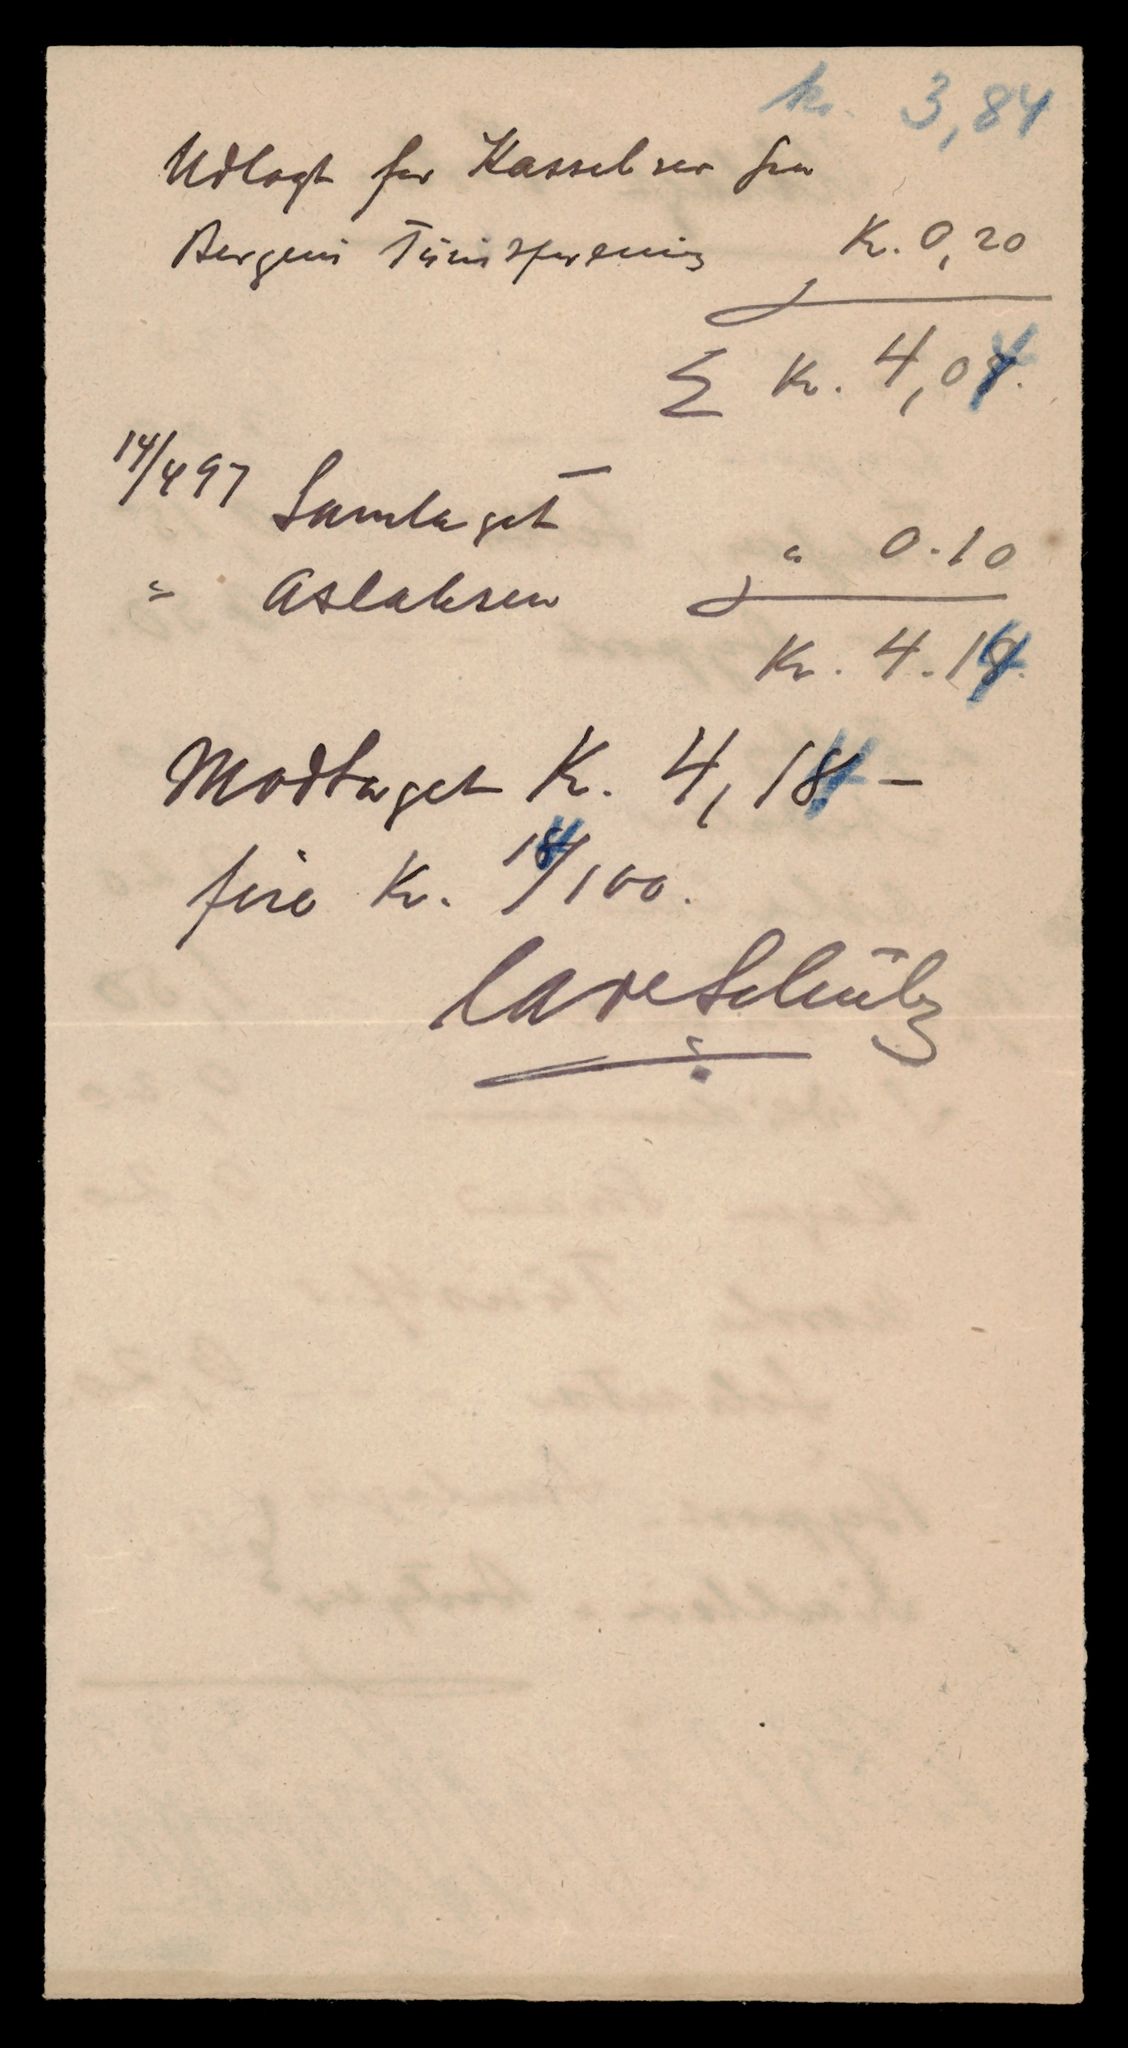 kr. 3,84
Udlagt for Kassel ver fra
Bergens Turistforening Kr. 0,20
Σ Kr. 4,04.
14/4 97 Samlaget
" Aslaksen " 0.10
Kr. 4.14.
Modtaget Kr. 4,14 –
fire Kr. 14/100.